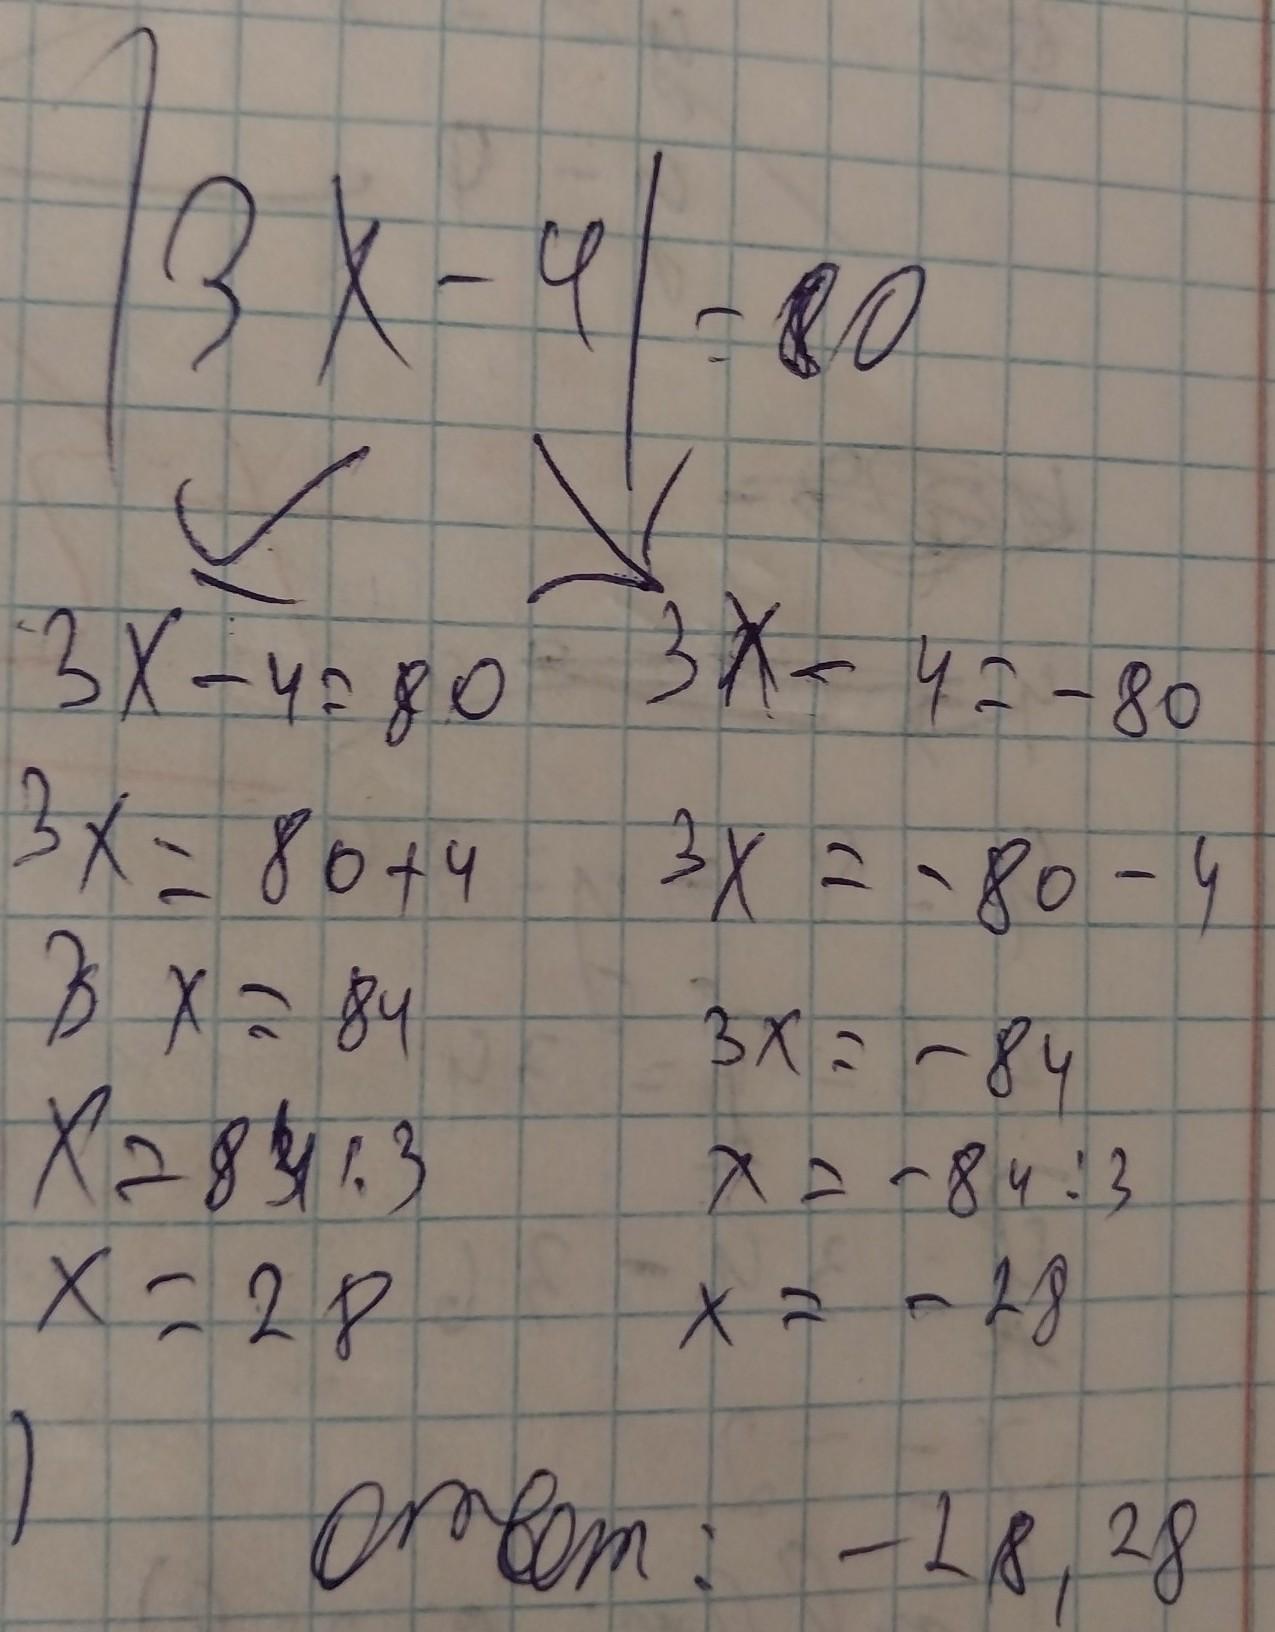 |3x-4|=80
3x-4=80 3x-4=-80
3x=80+4 3x=-80-4
3x=84 3x=-84
x=84:3 x=-84:3
x=28 x=-28
ответ: -28, 28